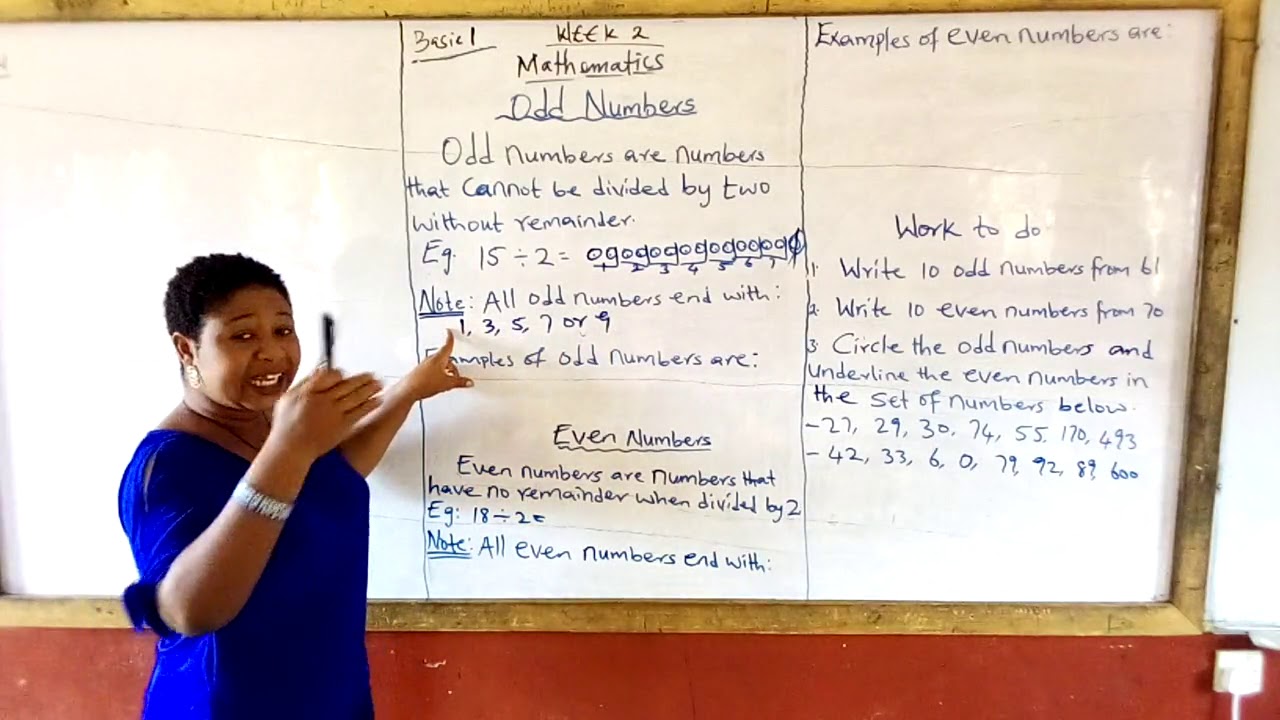 Basic 1
WEEK 2
Mathematics
Odd Numbers
Odd numbers are numbers
that cannot be divided by two
without remainder.
Eg. 15 ÷ 2 =
1 2 3 4 5 6 7
Note: All odd numbers end with:
1, 3, 5, 7 or 9
Examples of odd numbers are:
Even Numbers
Even numbers are numbers that
have no remainder when divided by 2
Eg: 18 ÷ 2 =
Note: All even numbers end with:
Examples of even numbers are:
Work to do
1. Write 10 odd numbers from 61
2. Write 10 even numbers from 70
3. Circle the odd numbers and
underline the even numbers in
the set of numbers below.
- 27, 29, 30, 74, 55, 170, 493
- 42, 33, 6, 0, 79, 92, 89, 600